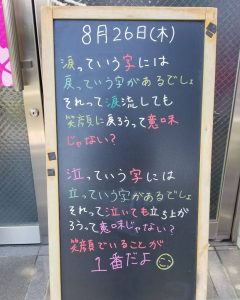 8月26日(木)
涙っていう字には
戻っていう字があるでしょ
それって涙流しても
笑顔に戻ろうって意味
じゃない?
泣っていう字には
立っていう字があるでしょ
それって泣いても立ち上が
ろうって意味じゃない?
笑顔でいることが
1番だよ